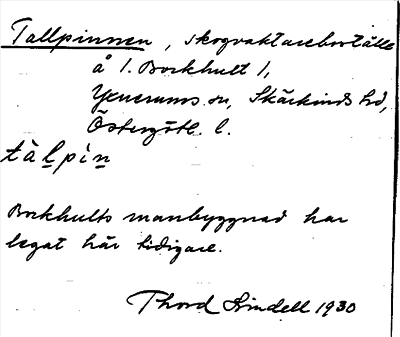 Tallpinnen, skogvaktareboställe
å 1. Borkhult 1,
Yxnerums sn, Skärkinds hd,
Östergötl. l.
tàlpìn
Borkhults manbyggnad har
legat här tidigare.
Thord Lindell 1930